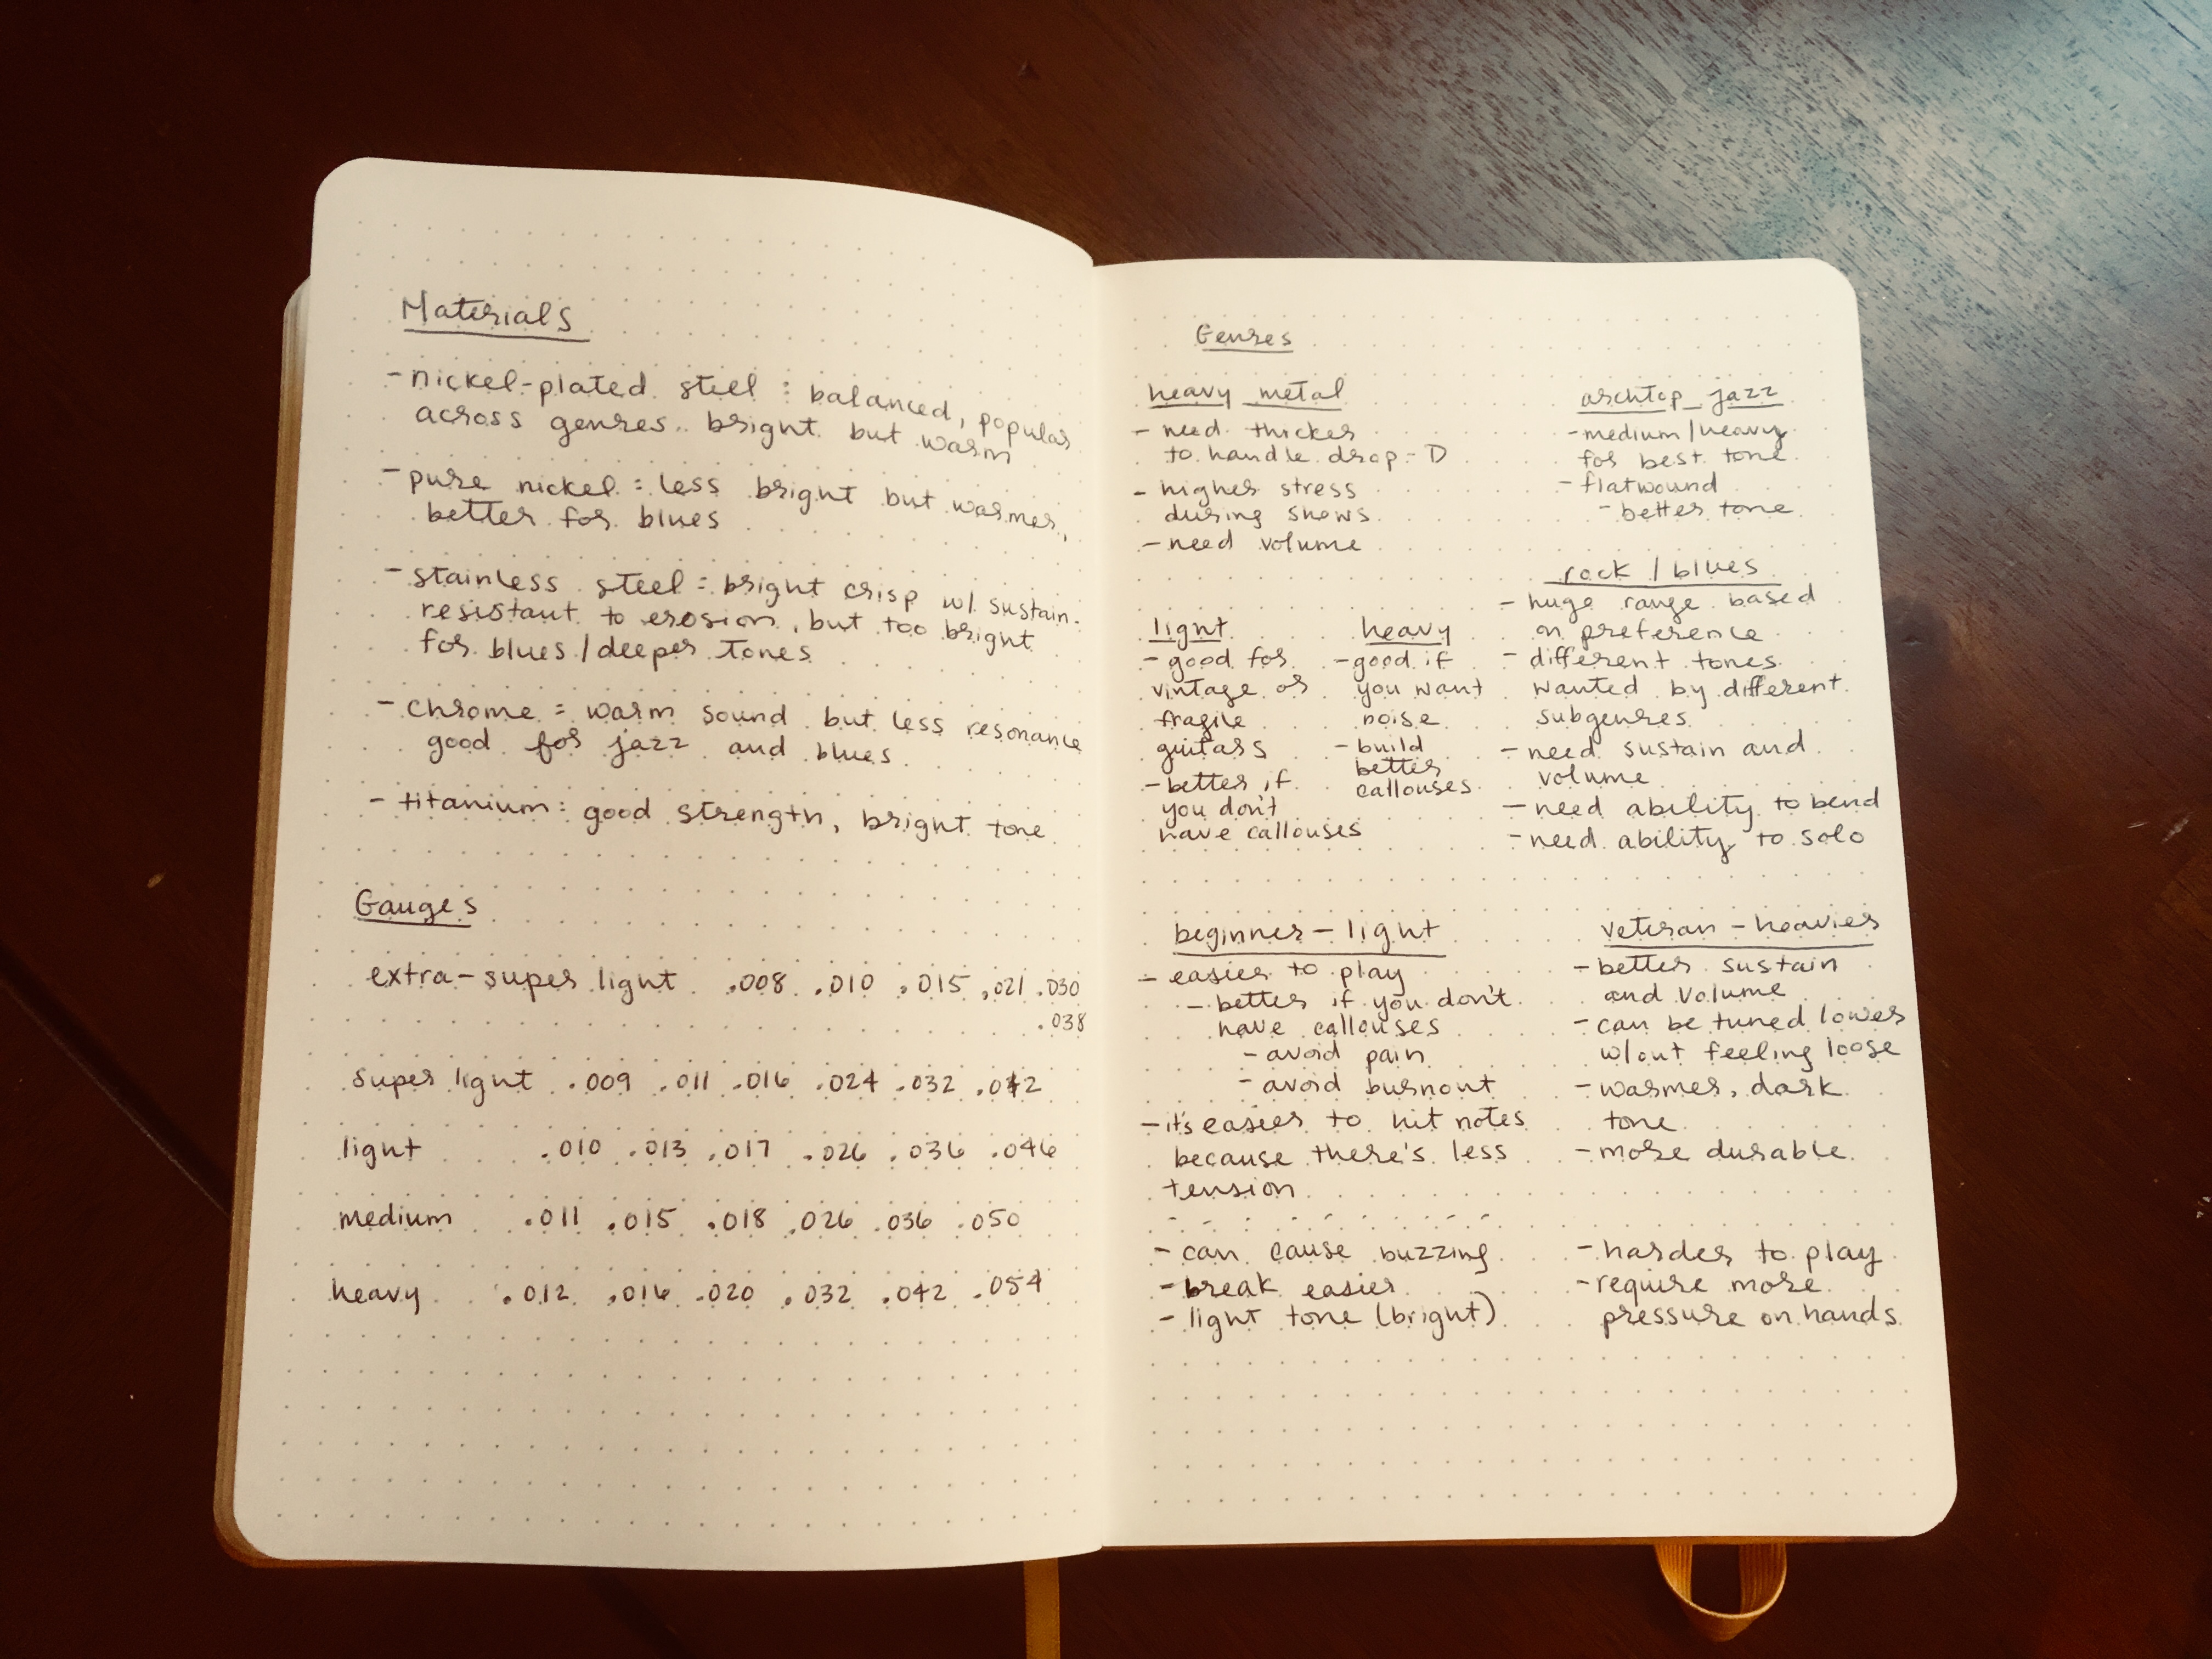 Materials
- nickel-plated steel : balanced, popular
across genres. bright but warm
- pure nickel : less bright but warmer,
better for blues
- stainless steel : bright crisp w/ sustain.
resistant to erosion, but too bright
for blues / deeper tones
- chrome = warm sound but less resonance
good for jazz and blues
- titanium : good strength, bright tone
Gauges
extra-super light .008 .010 .015 .021 .030
.038
super light .009 .011 .016 .024 .032 .042
light .010 .013 .017 .026 .036 .046
medium .011 .015 .018 .026 .036 .050
heavy .012 .016 .020 .032 .042 .054
Genres
heavy metal
- need thicker
to handle drop-D
- higher stress
during shows
- need volume
archtop jazz
- medium/heavy
for best tone
- flatwound
- better tone
light
- good for
vintage or
fragile
guitars
- better if
you don't
have callouses
heavy
- good if
you want
noise
- build
better
callouses
rock / blues
- huge range based
on preference
- different tones
wanted by different
subgenres
- need sustain and
volume
- need ability to bend
- need ability to solo
beginner - light
- easier to play
- better if you don't
have callouses
- avoid pain
- avoid burnout
- it's easier to hit notes
because there's less
tension
- can cause buzzing
- break easier
- light tone (bright)
veteran - heavier
- better sustain
and volume
- can be tuned lower
w/out feeling loose
- warmer, dark
tone
- more durable
- harder to play
- require more
pressure on hands